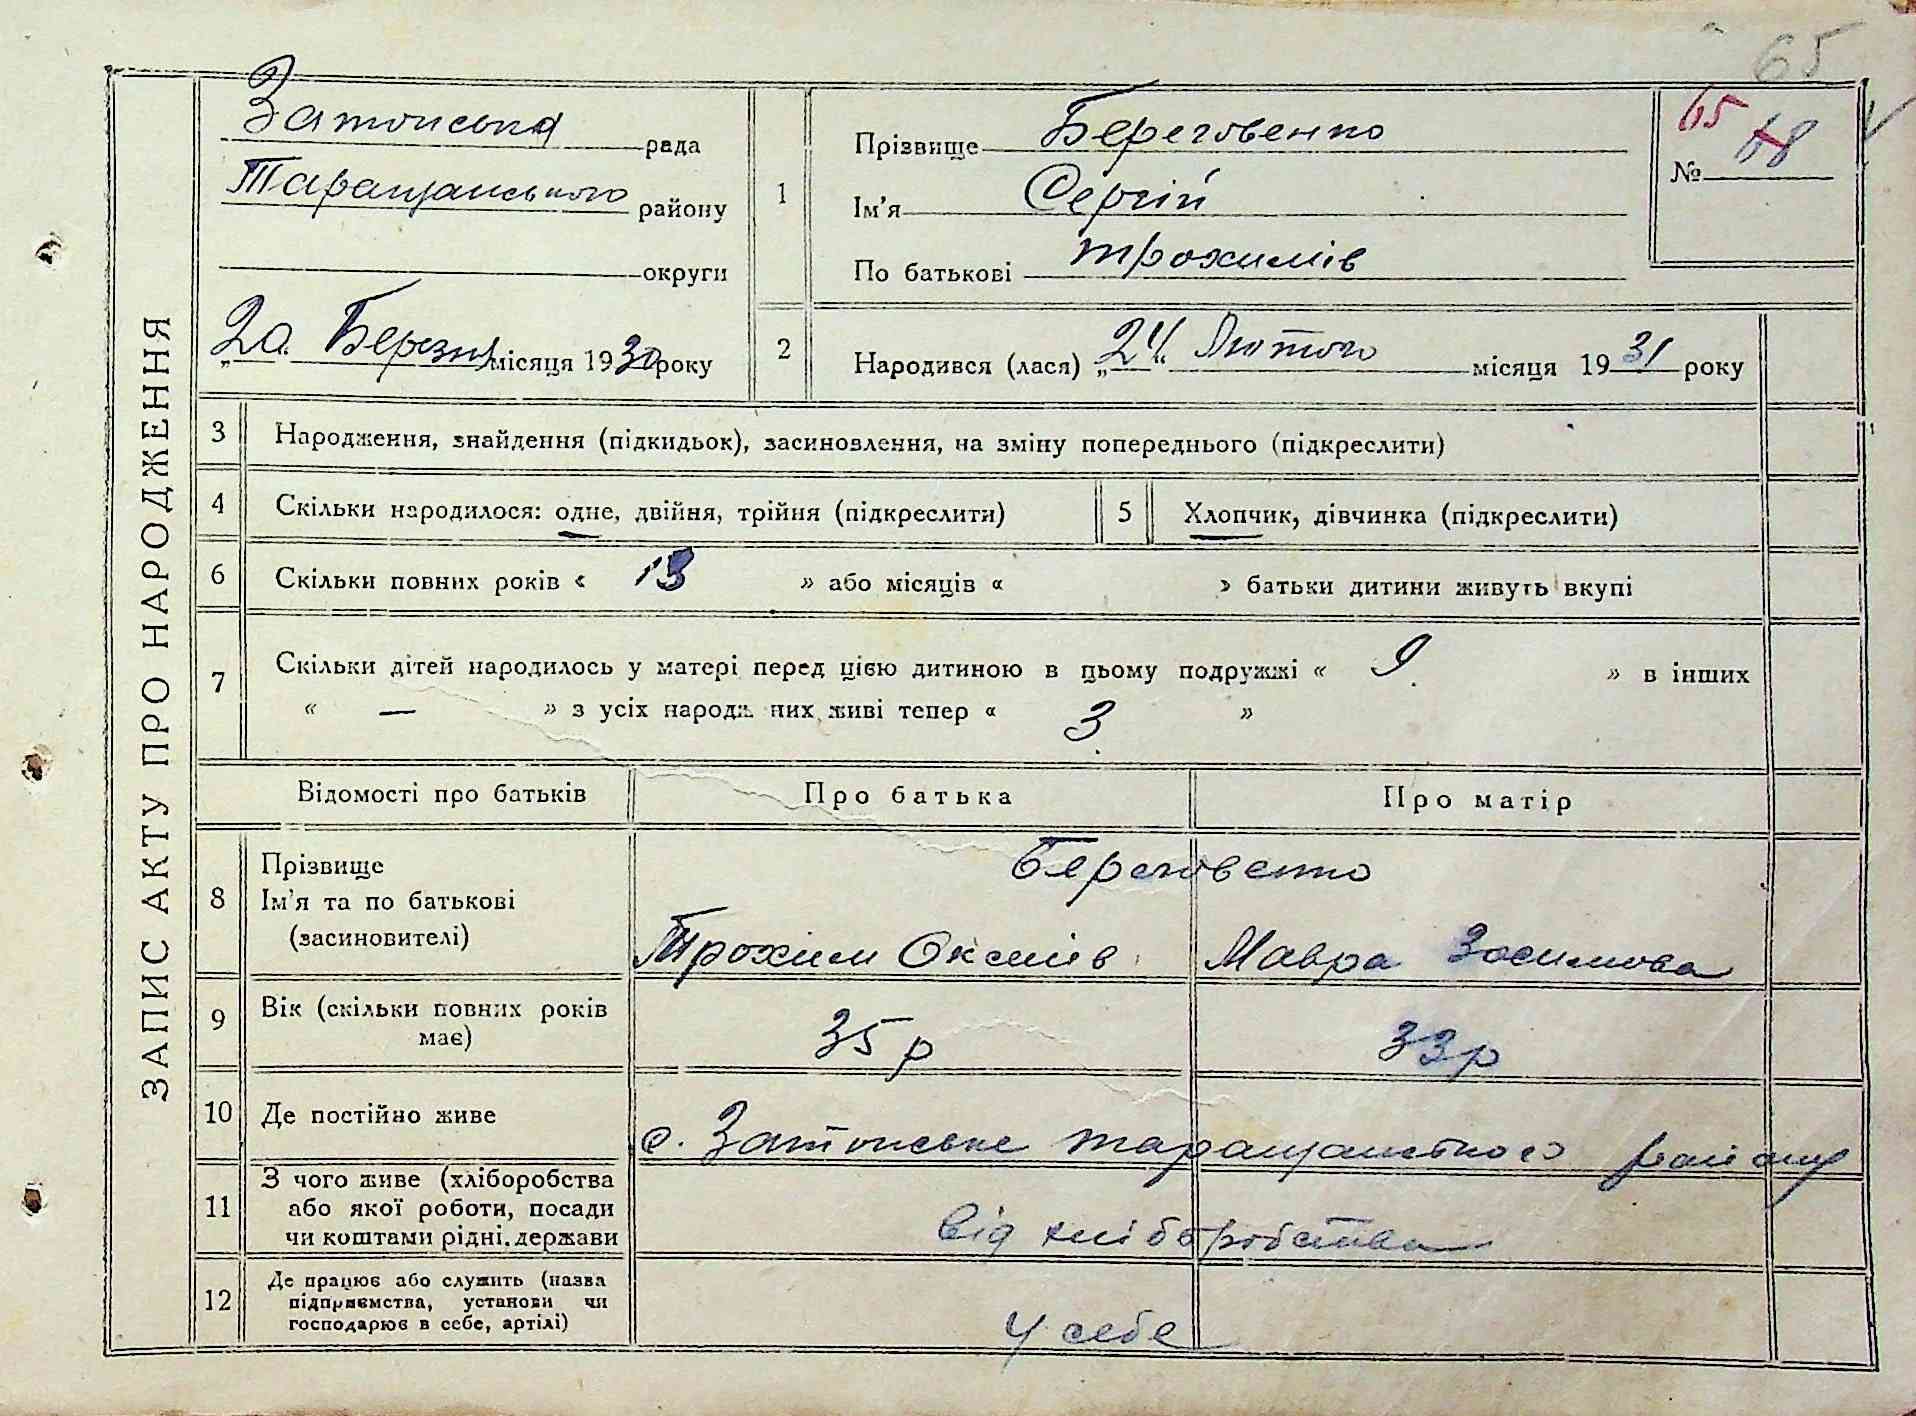 65
ЗАПИС АКТУ ПРО НАРОДЖЕННЯ
Затонська рада
Таращанського району
округи
„20 Березня місяця 1930 року
1
Прізвище Береговенко
Ім'я Сергій
По батькові Трохимів
65 68
№
2
Народився (лася) „24“ Лютого місяця 1931 року
3 Народження, знайдення (підкидьок), засиновлення, на зміну попереднього (підкреслити)
4 Скільки народилося: одне, двійня, трійня (підкреслити)
5 Хлопчик, дівчинка (підкреслити)
6 Скільки повних років « 13 » або місяців « » батьки дитини живуть вкупі
7 Скільки дітей народилось у матері перед цією дитиною в цьому подружжі « 9 » в інших
« — » з усіх народж них живі тепер « 3 »
Відомості про батьків Про батька Про матір
8 Прізвище
Ім'я та по батькові
(засиновителі)
Береговенко
Трохим Мавра Зосимова
9 Вік (скільки повних років
має)
35 р 33 р
10 Де постійно живе
с. Затонське таращанського району
11 З чого живе (хліборобства
або якої роботи, посади
чи коштами рідні. держави
від хліборобства
12 Де працює або служить (назва
підприємства, установи чи
господарює в себе, артілі)
у себе